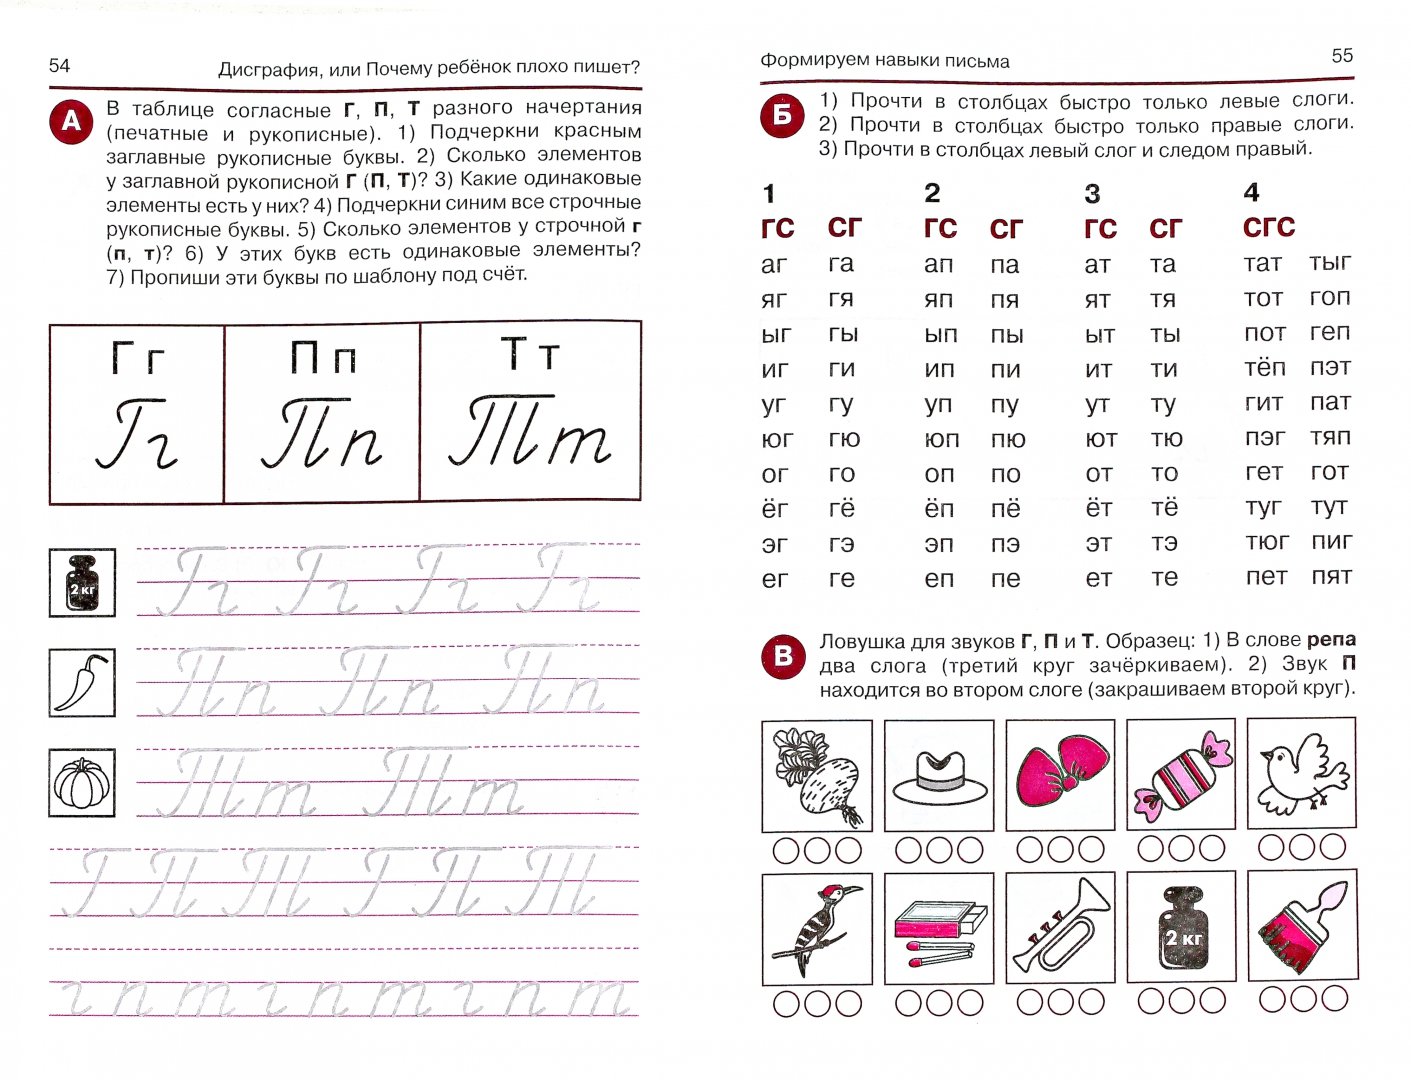 54
Дисграфия, или Почему ребёнок плохо пишет?
А
В таблице согласные Г, П, Т разного начертания
(печатные и рукописные). 1) Подчеркни красным
заглавные рукописные буквы. 2) Сколько элементов
у заглавной рукописной Г (П, Т)? 3) Какие одинаковые
элементы есть у них? 4) Подчеркни синим все строчные
рукописные буквы. 5) Сколько элементов у строчной г
(п, т)? 6) У этих букв есть одинаковые элементы?
7) Пропиши эти буквы по шаблону под счёт.
Г г П п Т т
Гг Пп Тт
2 кг
Гг Гг Гг Гг
Пп Пп Пп
Тт Тт
Г П Т Г П Т
г п т г п т г п т
Формируем навыки письма
55
Б
1) Прочти в столбцах быстро только левые слоги.
2) Прочти в столбцах быстро только правые слоги.
3) Прочти в столбцах левый слог и следом правый.
1 2 3 4
ГС СГ ГС СГ ГС СГ СГС
аг га ап па ат та тат тыг
яг гя яп пя ят тя тот гоп
ыг гы ып пы ыт ты пот геп
иг ги ип пи ит ти тёп пэт
уг гу уп пу ут ту гит пат
юг гю юп пю ют тю пэг тяп
ог го оп по от то гет гот
ёг гё ёп пё ёт тё туг тут
эг гэ эп пэ эт тэ тюг пиг
ег ге еп пе ет те пет пят
В
Ловушка для звуков Г, П и Т. Образец: 1) В слове репа
два слога (третий круг зачёркиваем). 2) Звук П
находится во втором слоге (закрашиваем второй круг).
2 кг